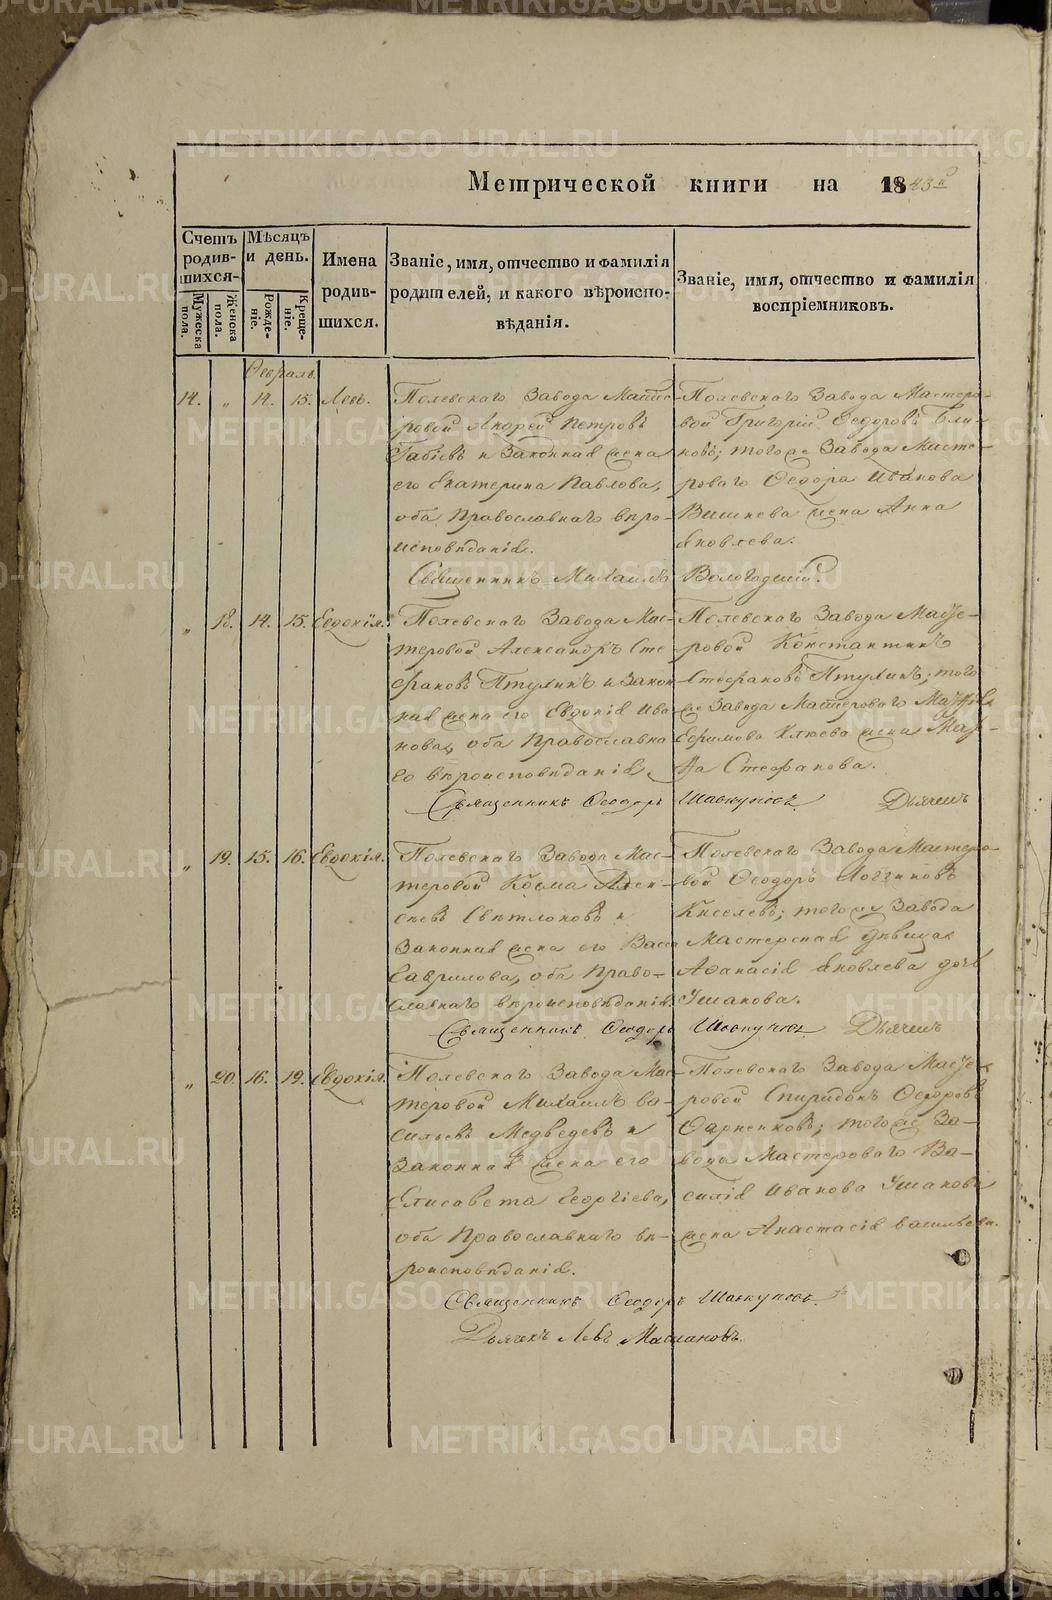 Метрической книги на 1843й
Счетъ родив-шихся.
Мужеска пола.
Женска пола.
Мѣсяцъ и день.
Рожде-ніе.
Креще-ніе.
Имена родив-шихся.
Званіе, имя, отчество и фамилія родителей, и какого вѣроиспо-вѣданія.
Званіе, имя, отчество и фамилія воспріемниковъ.
Февраль.
14. „ 14. 15. Левъ.
Полевскаго Завода Масте-
ровой Андрей Петровъ
и Законная жена
его Екатерина Павлова,
оба Православнаго вѣро-
исповѣданія.
Полевскаго Завода Мастеро-
вой Григорій Ѳедоровъ Бли-
новъ; тогоже Завода Масте-
роваго Ѳедора Иванова
жена Анна
Яковлева.
Священникъ Михаилъ Вологодскій.
„ 18. 14. 15. Евдокія.
Полевскаго Завода Мас-
теровой Александръ Сте-
фановъ Птухинъ и Закон-
ная жена его Евдокія Ива-
нова, оба Православна-
го вѣроисповѣданія.
Полевскаго Завода Масте-
ровой Константинъ
Стефановъ Птухинъ; того
же Завода Мастероваго
Ефимова Клюева жена Мар-
ѳа Стефанова.
Священникъ Ѳеодоръ Шавкуновъ Дьячекъ
„ 19. 15. 16. Евдокія.
Полевскаго Завода Мас-
теровой Косма Алек-
сѣевъ и
Законная жена его Васса
Гаврилова, оба Право-
славнаго вѣроисповѣданія.
Полевскаго Завода Мастеро-
вой Ѳеодоръ Логгиновъ
Киселевъ; тогоже Завода
Мастерская дѣвица
Аѳанасія Яковлева дочь
Ушакова.
Священникъ Ѳеодоръ Шавкуновъ Дьячекъ
„ 20. 16. 19. Евдокія.
Полевскаго Завода Мас-
теровой Михаилъ Ва-
сильевъ Медведевъ и
Законная жена его
Елисавета Георгіева,
оба Православнаго вѣ-
роисповѣданія.
Полевскаго Завода Масте-
ровой Спиридонъ Ѳедоровъ
тогоже За-
вода Мастероваго Ва-
силія Иванова Ушакова
жена Анастасія Васильева.
Священникъ Ѳеодоръ Шавкуновъ.
Дьячекъ Левъ
METRIKI.GASO-URAL.RU